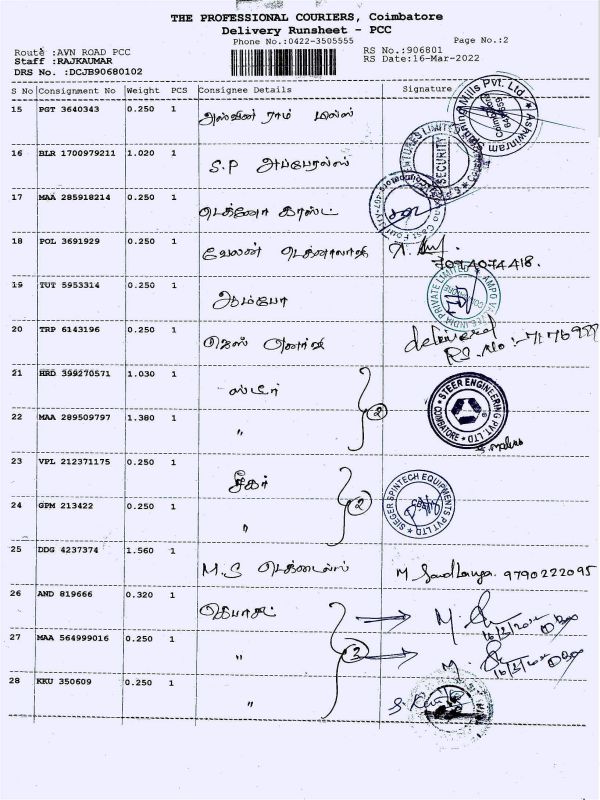 THE PROFESSIONAL COURIERS, Coimbatore
Delivery Runsheet - PCC
Phone No.:0422-3505555 Page No.:2
Route :AVN ROAD PCC RS No.:906801
Staff :RAJKUMAR RS Date:16-Mar-2022
DRS No. :DCJB90680102
S No Consignment No Weight PCS Consignee Details Signature
15 PGT 3640343 0.250 1 அஸ்வின் ராம் மில்ஸ்
Ashwinram Spinning Mills Pvt. Ltd
16 BLR 1700979211 1.020 1 S.P அப்பேரல்ஸ்
SECURITY
17 MAA 285918214 0.250 1 டெக்னோ காஸ்ட்
18 POL 3691929 0.250 1 வேலன் டெக்னாலாஜி
7094074418.
19 TUT 5953314 0.250 1 ஆம்போ
20 TRP 6143196 0.250 1
delivered
21 HRD 399270571 1.030 1 ஸ்டீர்
STEER ENGINEERING PVT. LTD COIMBATORE
22 MAA 289509797 1.380 1 " 2
23 VPL 212371175 0.250 1 சீகர்
SIEGER SPINTECH EQUIPMENTS PVT LTD
24 GPM 213422 0.250 1 " 2
25 DDG 4237374 1.560 1 M.S டெக்ஸ்டைல்ஸ் 9790222095
26 AND 819666 0.320 1
27 MAA 564999016 0.250 1 " 3
28 KKU 350609 0.250 1 "